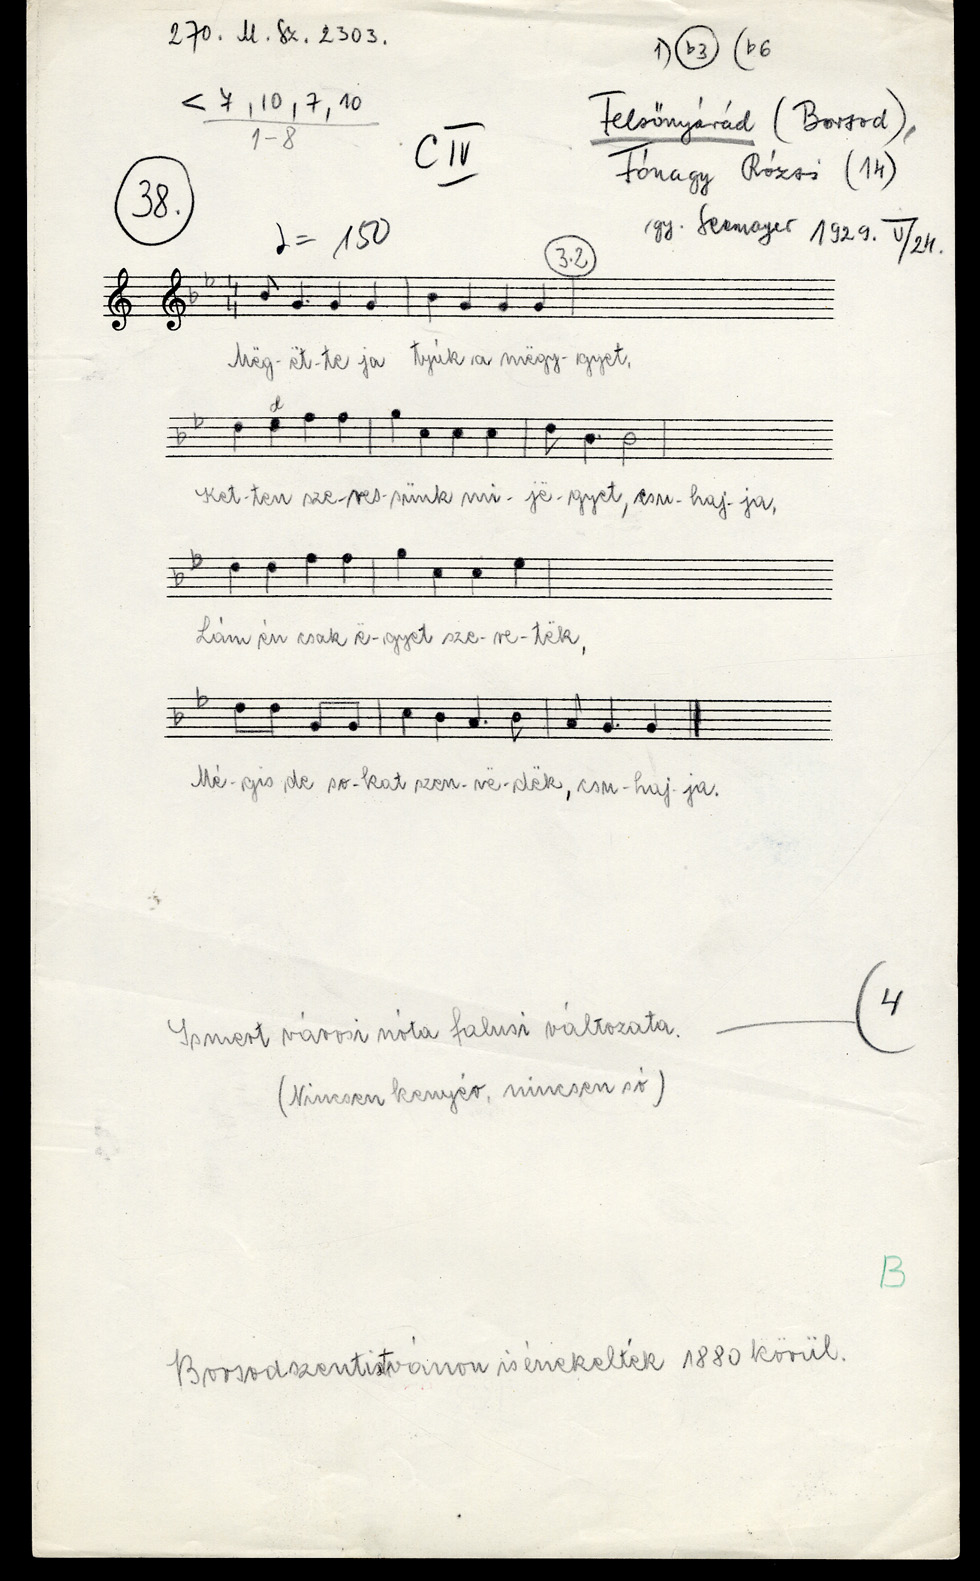 270. M. Sz. 2303.
1) b3 (b6
< 7, 10, 7, 10
1-8
C IV
Felsőnyárád (Borsod),
Fónagy Rózsi (14)
gy. Seemayer 1929. V/24.
38.
♩ = 150
3.2
4
4
Mëg-ët-te ja tyúk a mëgy-gyet,
d
Ket-ten sze-res-sünk mi-jë-gyet, csu-haj-ja,
Lám én csak ë-gyet sze-re-ték,
Mé-gis de so-kat szen-ve-dék, csu-haj-ja.
Ismert városi nóta falusi változata.
(4
(Nincsen kenyér, nincsen só)
B
Borsodszentistvánon is énekelték 1880 körül.